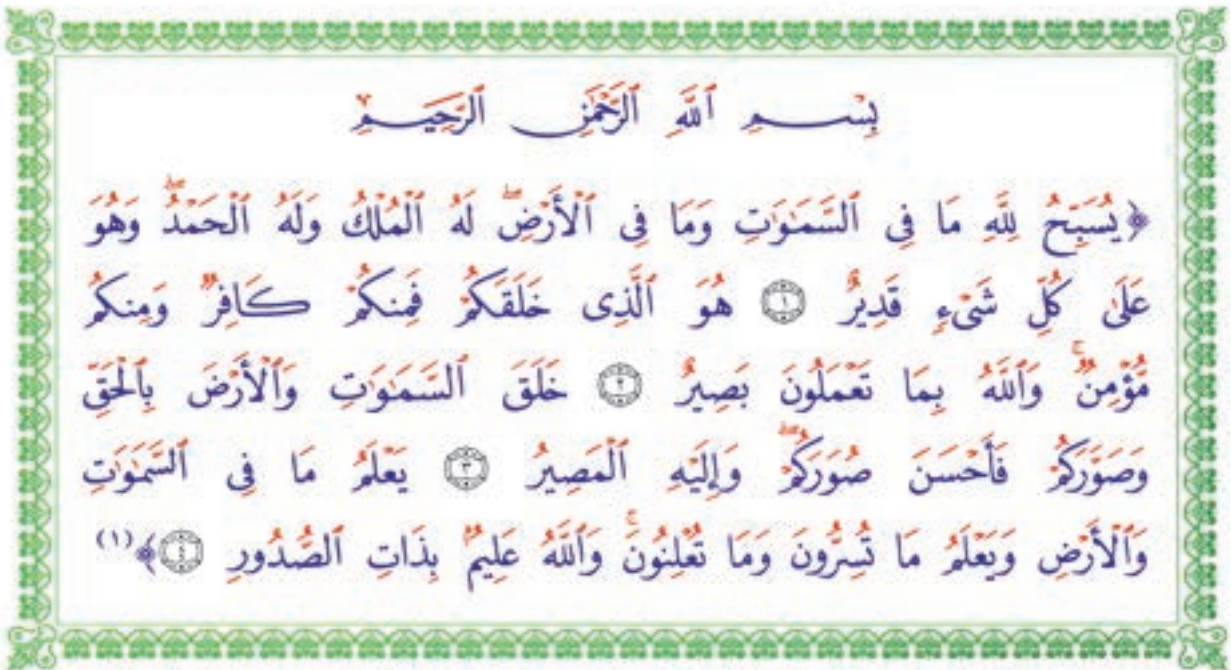 بِسْمِ ٱللَّهِ ٱلرَّحْمَٰنِ ٱلرَّحِيمِ
﴿يُسَبِّحُ لِلَّهِ مَا فِى ٱلسَّمَٰوَٰتِ وَمَا فِى ٱلْأَرْضِۖ لَهُ ٱلْمُلْكُ وَلَهُ ٱلْحَمْدُۖ وَهُوَ
عَلَىٰ كُلِّ شَىْءٍ قَدِيرٌ ١ هُوَ ٱلَّذِى خَلَقَكُمْ فَمِنكُمْ كَافِرٌ وَمِنكُم
مُّؤْمِنٌۚ وَٱللَّهُ بِمَا تَعْمَلُونَ بَصِيرٌ ٢ خَلَقَ ٱلسَّمَٰوَٰتِ وَٱلْأَرْضَ بِٱلْحَقِّ
وَصَوَّرَكُمْ فَأَحْسَنَ صُوَرَكُمْۖ وَإِلَيْهِ ٱلْمَصِيرُ ٣ يَعْلَمُ مَا فِى ٱلسَّمَٰوَٰتِ
وَٱلْأَرْضِ وَيَعْلَمُ مَا تُسِرُّونَ وَمَا تُعْلِنُونَۚ وَٱللَّهُ عَلِيمٌۢ بِذَاتِ ٱلصُّدُورِ ٤﴾(١)